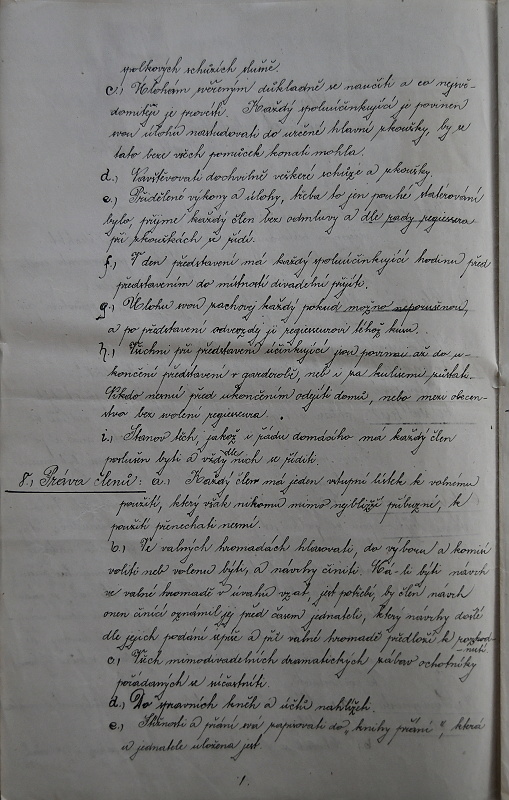 spolkových schůzích slušně.
c.) Úlohám svěřeným důkladně se naučiti a co nejsvě-
domitěji je provésti. Každý spoluúčinkující je povinen
svou úlohu nastudovati do určené hlavní zkoušky, by se
tato beze všech pomůcek konati mohla.
d.) Navštěvovati dochvilně veškeré schůze a zkoušky.
e.) Přidělené výkony a úlohy, třeba to jen pouhé statování
bylo, přijme každý člen bez odmluvy a dle rady regisseura
při zkouškách se řídí.
f.) V den představení má každý spoluúčinkující hodinu před
představením do místnosti divadelní přijíti.
g.) Úlohu svou zachovej každý pokud možno neporušenou,
a po představení odevzdej je regisseurovi téhož kusu.
h.) Všichni při představení účinkující jsou povinni až do u-
končení představení v garderobě, neb i za kulisemi zůstati.
Nikdo nesmí před ukončením odejíti domů, nebo mezi obecen-
stvo bez svolení regisseura.
i.) Stanov těch, jakož i řádu domácího má každý člen
poslušen býti a vždy dle nich se říditi.
8.) Práva členů: a.) Každý člen má jeden vstupní lístek k volnému
použití, který však nikomu mimo nejbližší příbuzné, k
použití přenechati nesmí.
b.) Ve valných hromadách hlasovati, do výboru a komisí
voliti neb volenu býti, a návrhy činiti. Má-li býti návrh
ve valné hromadě v úvahu vzat, jest potřebí, by člen návrh
onen činící oznámil jej před časem jednateli, který návrhy došlé
dle jejich podání sepíše a při valné hromadě předloží k rozhod-
nutí.
c.) Všech mimodivadelních dramatických zábav ochotníky
pořádaných se súčastniti.
d.) Do správních kněh a účtů nahlížeti.
e.) Stížnosti a přání svá zapisovati do „knihy přání“, která
u jednatele uložena jest.
1.